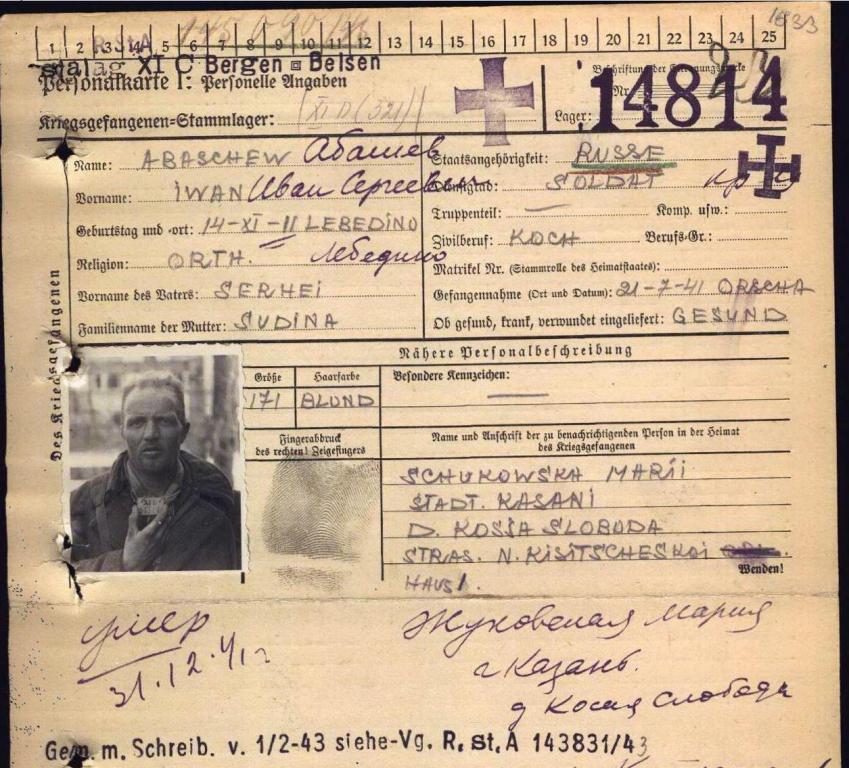 1833
1 2 3 4 5 6 7 8 9 10 11 12 13 14 15 16 17 18 19 20 21 22 23 24 25
R.St.A
Stalag XI C Bergen Belsen
Personalkarte I: Personelle Angaben
Kriegsgefangenen=Stammlager: XI D (321)
Beschriftung der Erkennungsmarke
Nr.
Lager: 14814
Des Kriegsgefangenen
Name: ABASCHEW Абашев
Vorname: IWAN Иван Сергеевич
Geburtstag und =ort: 14-XI-11 LEBEDINO
Religion: ORTH. Лебедино
Vorname des Vaters: SERHEI
Familienname der Mutter: SUDINA
Staatsangehörigkeit: RUSSE
Dienstgrad: SOLDAT
Truppenteil: — Komp. usw.:
Zivilberuf: KOCH Berufs=Gr.:
Matrikel Nr. (Stammrolle des Heimatstaates):
Gefangennahme (Ort und Datum): 21-7-41 ORSCHA
Ob gesund, krank, verwundet eingeliefert: GESUND
Nähere Personalbeschreibung
Größe Haarfarbe Besondere Kennzeichen:
171 BLOND —
Fingerabdruck
des rechten! Zeigefingers
Name und Anschrift der zu benachrichtigenden Person in der Heimat
des Kriegsgefangenen
SCHUKOWSKA MARII
STADT. KASANI
D. KOSSA SLOBODA
STRAS. N. KISITSCHESKOI
HAUS 1.
Wenden!
умер
31.12.41г
Жуковская Мария
г Казань.
д Косая Слобода
Gem. m. Schreib. v. 1/2-43 siehe-Vg. R. St. A 143831/43